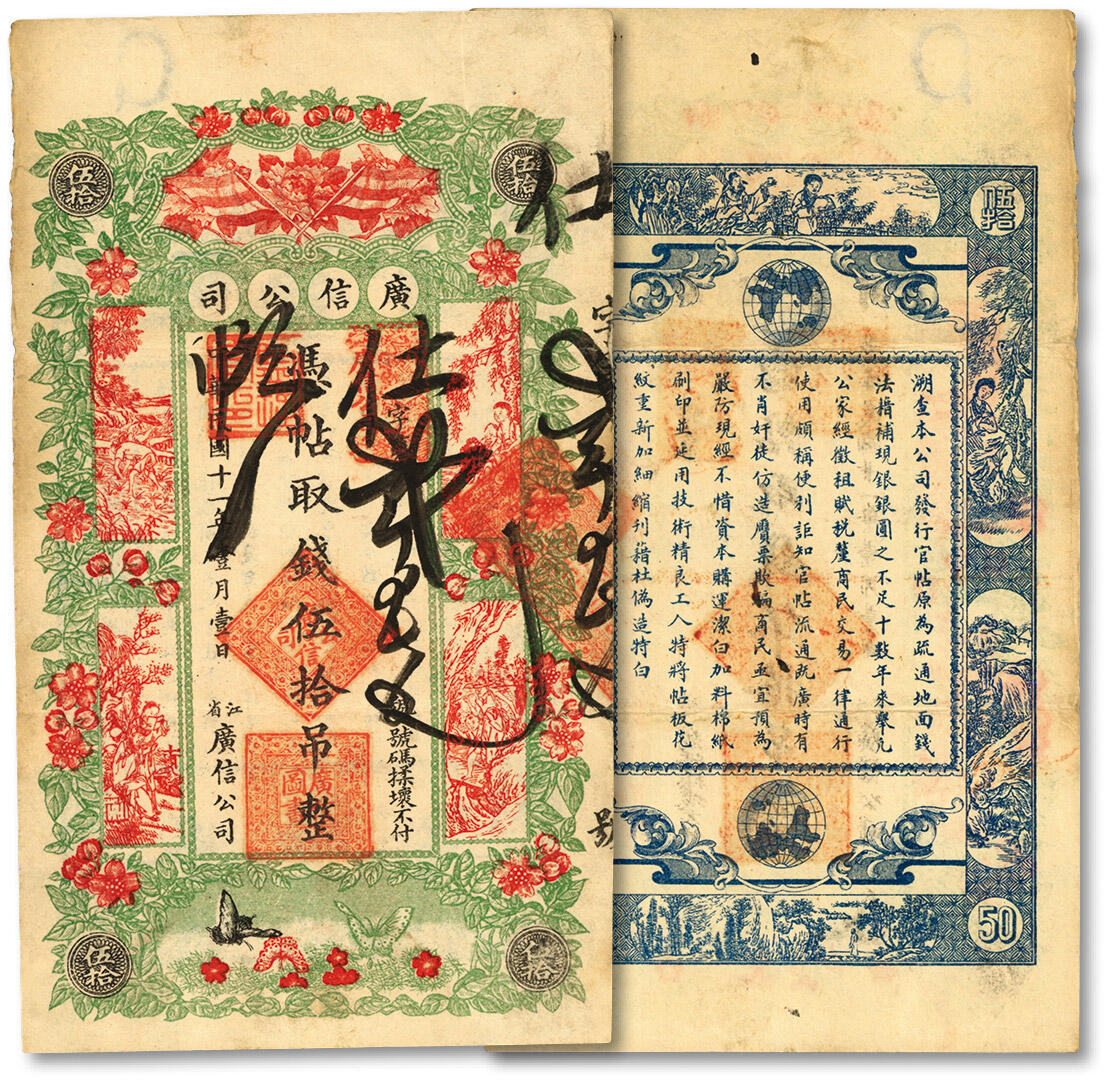 伍拾
伍拾
廣信公司
字
號碼揉壞不付
憑帖取錢伍拾吊整
民國十一年壹月壹日
江省廣信公司
伍拾
伍拾
字
號
伍拾
溯查本公司發行官帖原為疏通地面錢
法藉補現銀銀圓之不足十數年來舉凡
公家經徵租賦稅釐商民交易一律通行
使用頗稱便利詎知官帖流通既廣時有
不肖奸徒仿造贋票欺騙商民亟宜預為
嚴防現經不惜資本購運潔白加料棉紙
刷印並延用技術精良工人特將帖板花
紋重新加細縮刊藉杜偽造特白
50